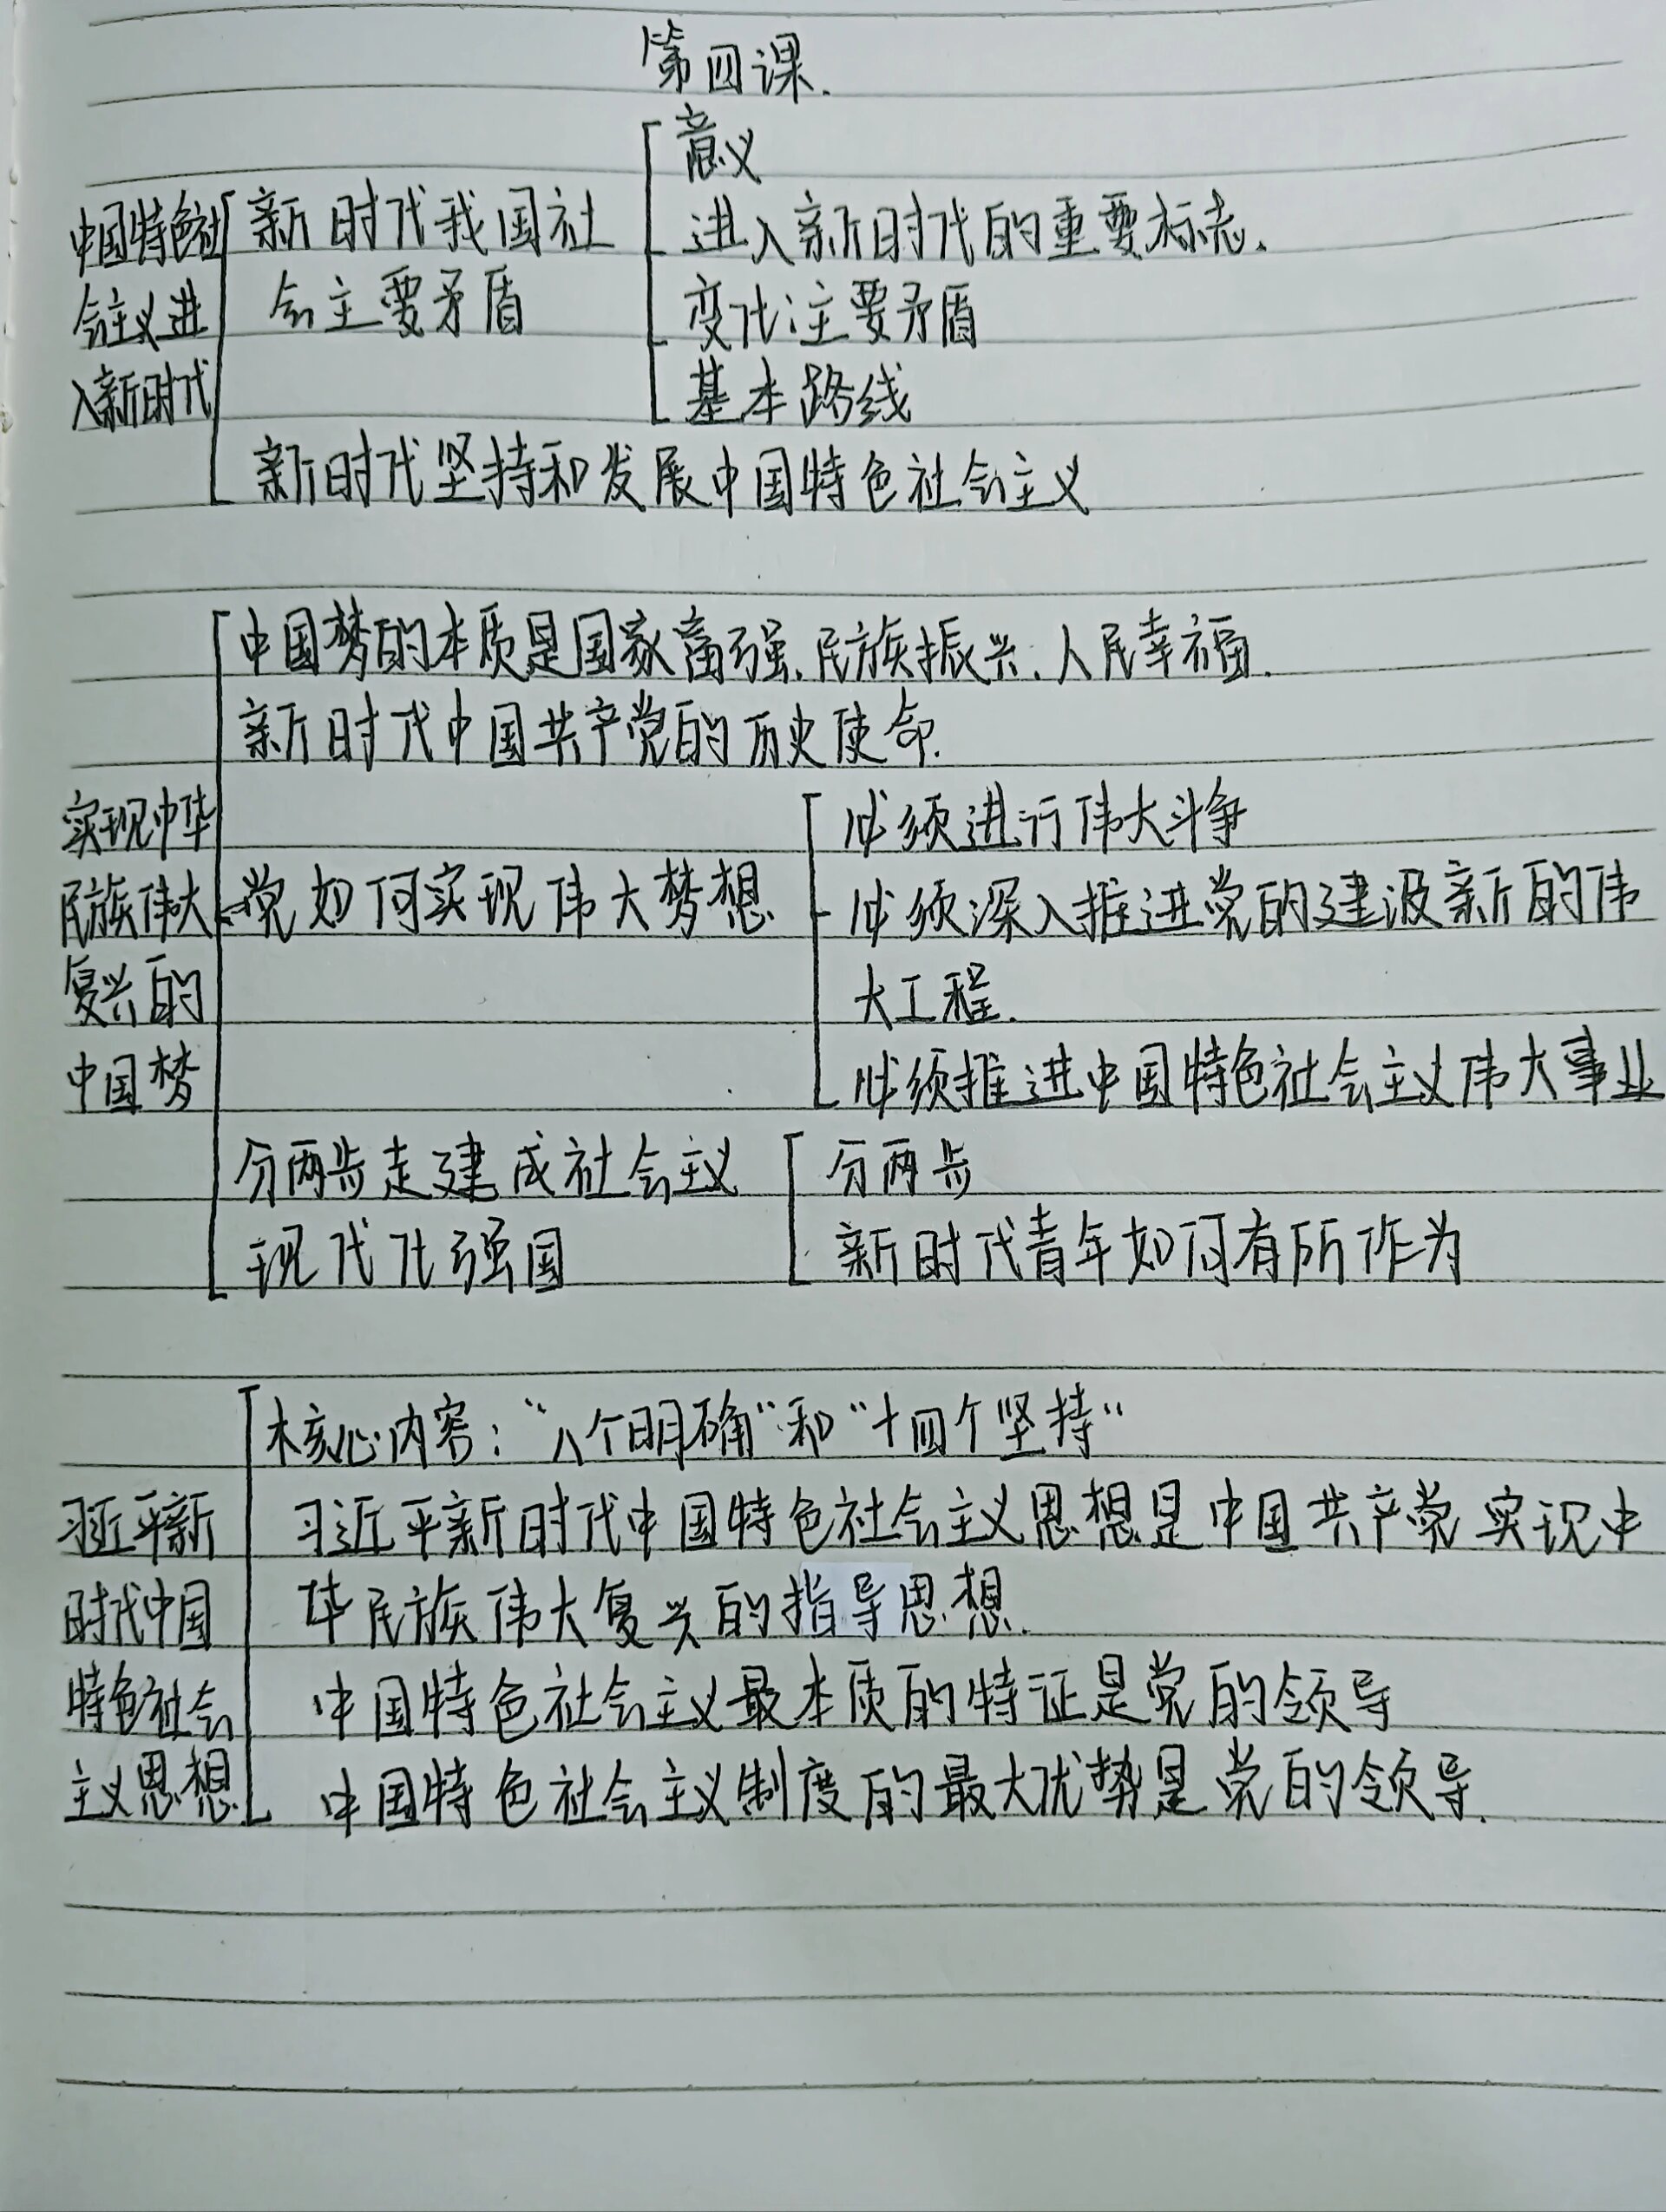 第四课.
意义
中国特色社 新时代我国社 进入新时代的重要标志.
会主义进 会主要矛盾 变化:主要矛盾
入新时代 基本路线
新时代坚持和发展中国特色社会主义
中国梦的本质是国家富强、民族振兴、人民幸福.
新时代中国共产党的历史使命.
实现中华 必须进行伟大斗争
民族伟大 党如何实现伟大梦想 必须深入推进党的建设新的伟
复兴的 大工程.
中国梦 必须推进中国特色社会主义伟大事业
分两步走建成社会主义 分两步
现代化强国 新时代青年如何有所作为
核心内容:“八个明确”和“十四个坚持”
习近平新 习近平新时代中国特色社会主义思想是中国共产党实现中
时代中国 华民族伟大复兴的指导思想.
特色社会 中国特色社会主义最本质的特征是党的领导
主义思想 中国特色社会主义制度的最大优势是党的领导.